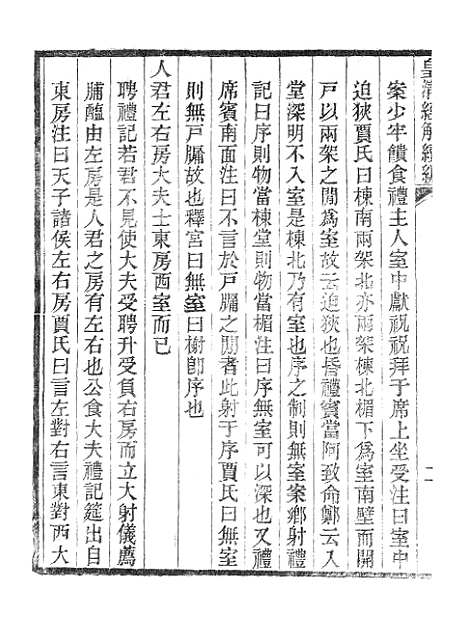 皇清經解續編
案少牢饋食禮主人室中獻祝祝拜于席上坐受注曰室中
迫狹賈氏曰棟南兩架北亦兩架棟北楣下爲室南壁而開
戸以兩架之閒爲室故云迫狹也昏禮賓當阿致命鄭云入
堂深明不入室是棟北乃有室也序之制則無室案鄉射
記曰序則物當棟堂則物當楣注曰序無室可以深也又禮
席賓南面注曰不言於戸牖之閒者此射于序賈氏曰無室
則無戸牖故也釋宮曰無室曰榭卽序也
人君左右房大夫士東房西室而已
聘禮記若君不見使大夫受聘升受負右房而立大射儀薦
脯醢由左房是人君之房有左右也公食大夫禮記筵出自
東房注曰天子諸侯左右房賈氏曰言左對右言東對西大
二